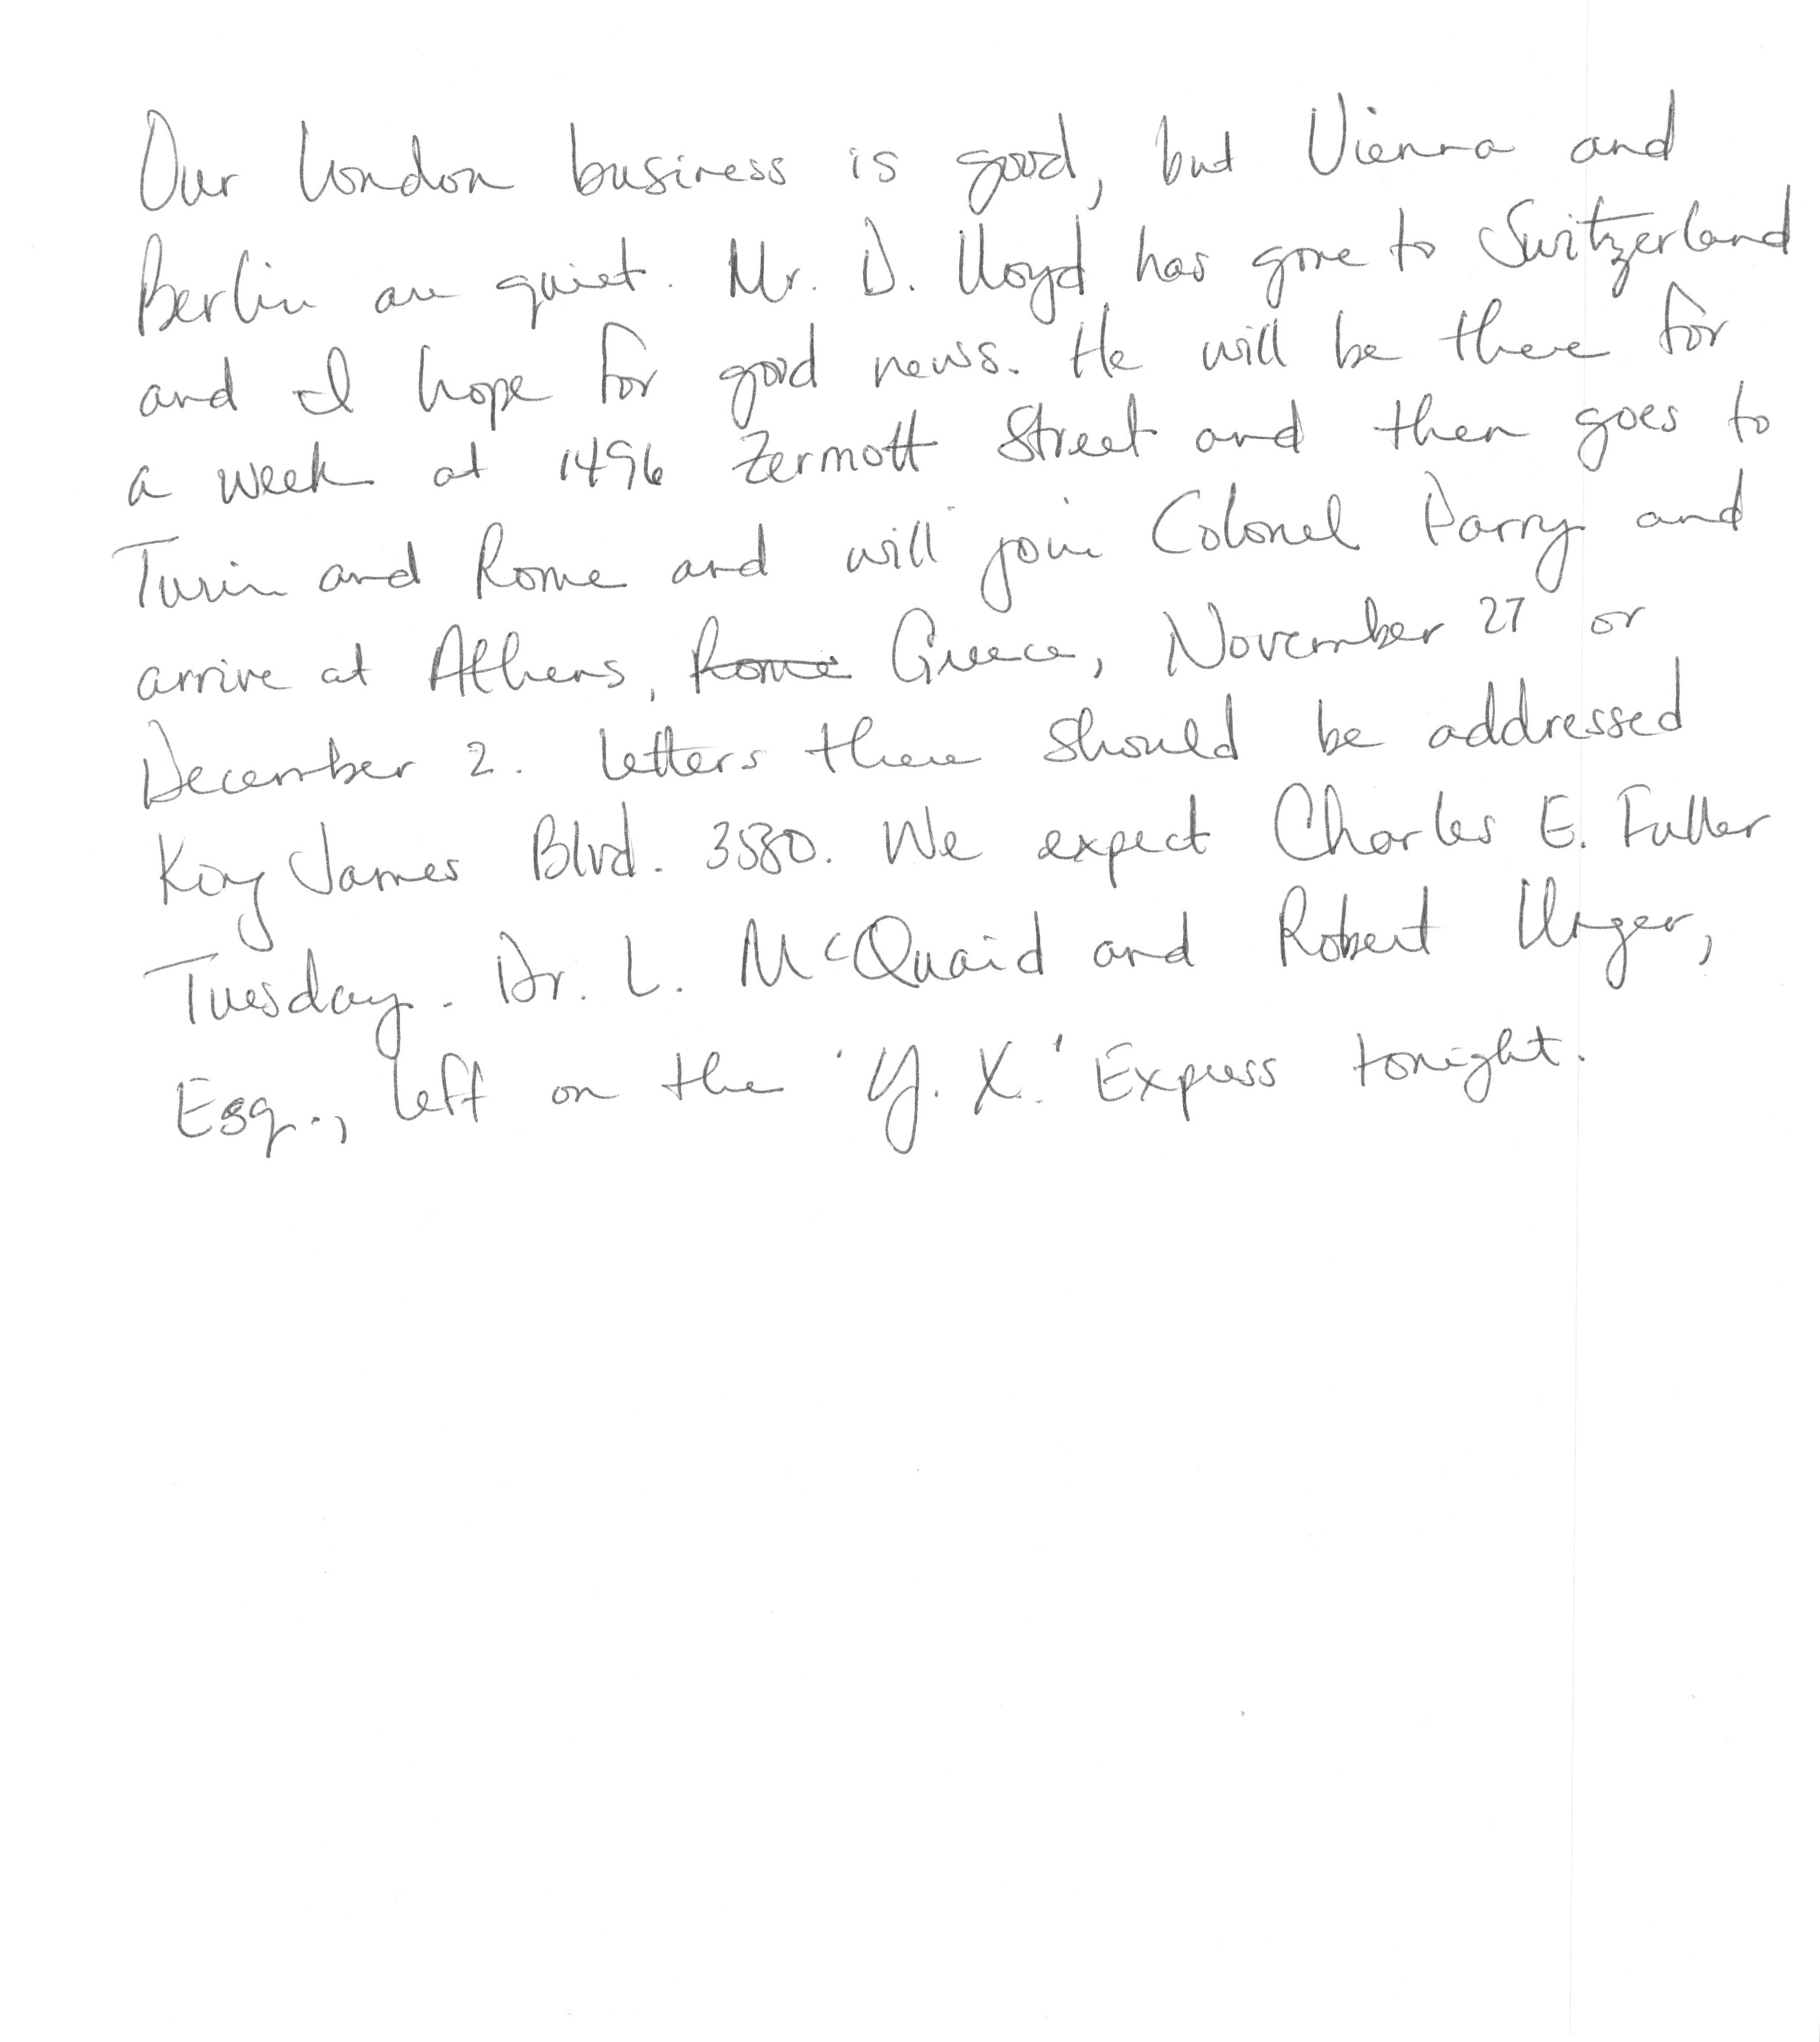 Our London business is good, but Vienna and
Berlin are quiet. Mr. D. Lloyd has gone to Switzerland
and I hope for good news. He will be there for
a week at 1496 Zermott Street and then goes to
Turin and Rome and will join Colonel Parry and
arrive at Athens, Rome Greece, November 27 or
December 2. Letters there should be addressed
King James Blvd. 3580. We expect Charles E. Fuller
Tuesday. Dr. L. McQuaid and Robert Unger,
Esq., left on the 'Y. X.' Express tonight.